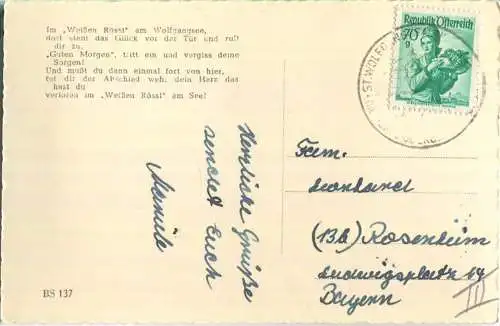 Im „Weißen Rössl" am Wolfgangsee,
dort steht das Glück vor der Tür und ruft
dir zu.
„Guten Morgen", tritt ein und vergiss deine
Sorgen!
Und mußt du dann einmal fort von hier,
tut dir der Abschied weh, dein Herz das
hast du
verloren im „Weißen Rössl" am See!
Republik Österreich
70
g
ST. WOLFG
Herzliche Grüße
sendet Euch
Fam.
Leonhard
(13b) Rosenheim
Ludwigsplatz 14
Bayern
III
BS 137